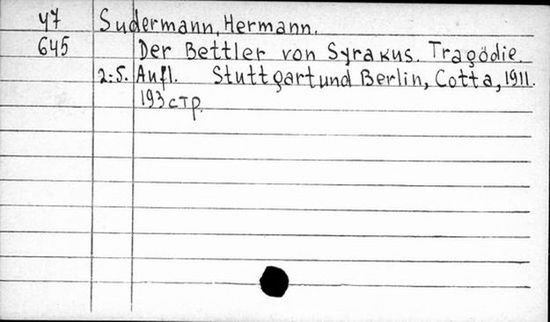 47 Sudermann, Hermann.
645 Der Bettler von Syrakus. Tragödie.
2.-5. Aufl. Stuttgart und Berlin, Cotta, 1911.
193 стр.